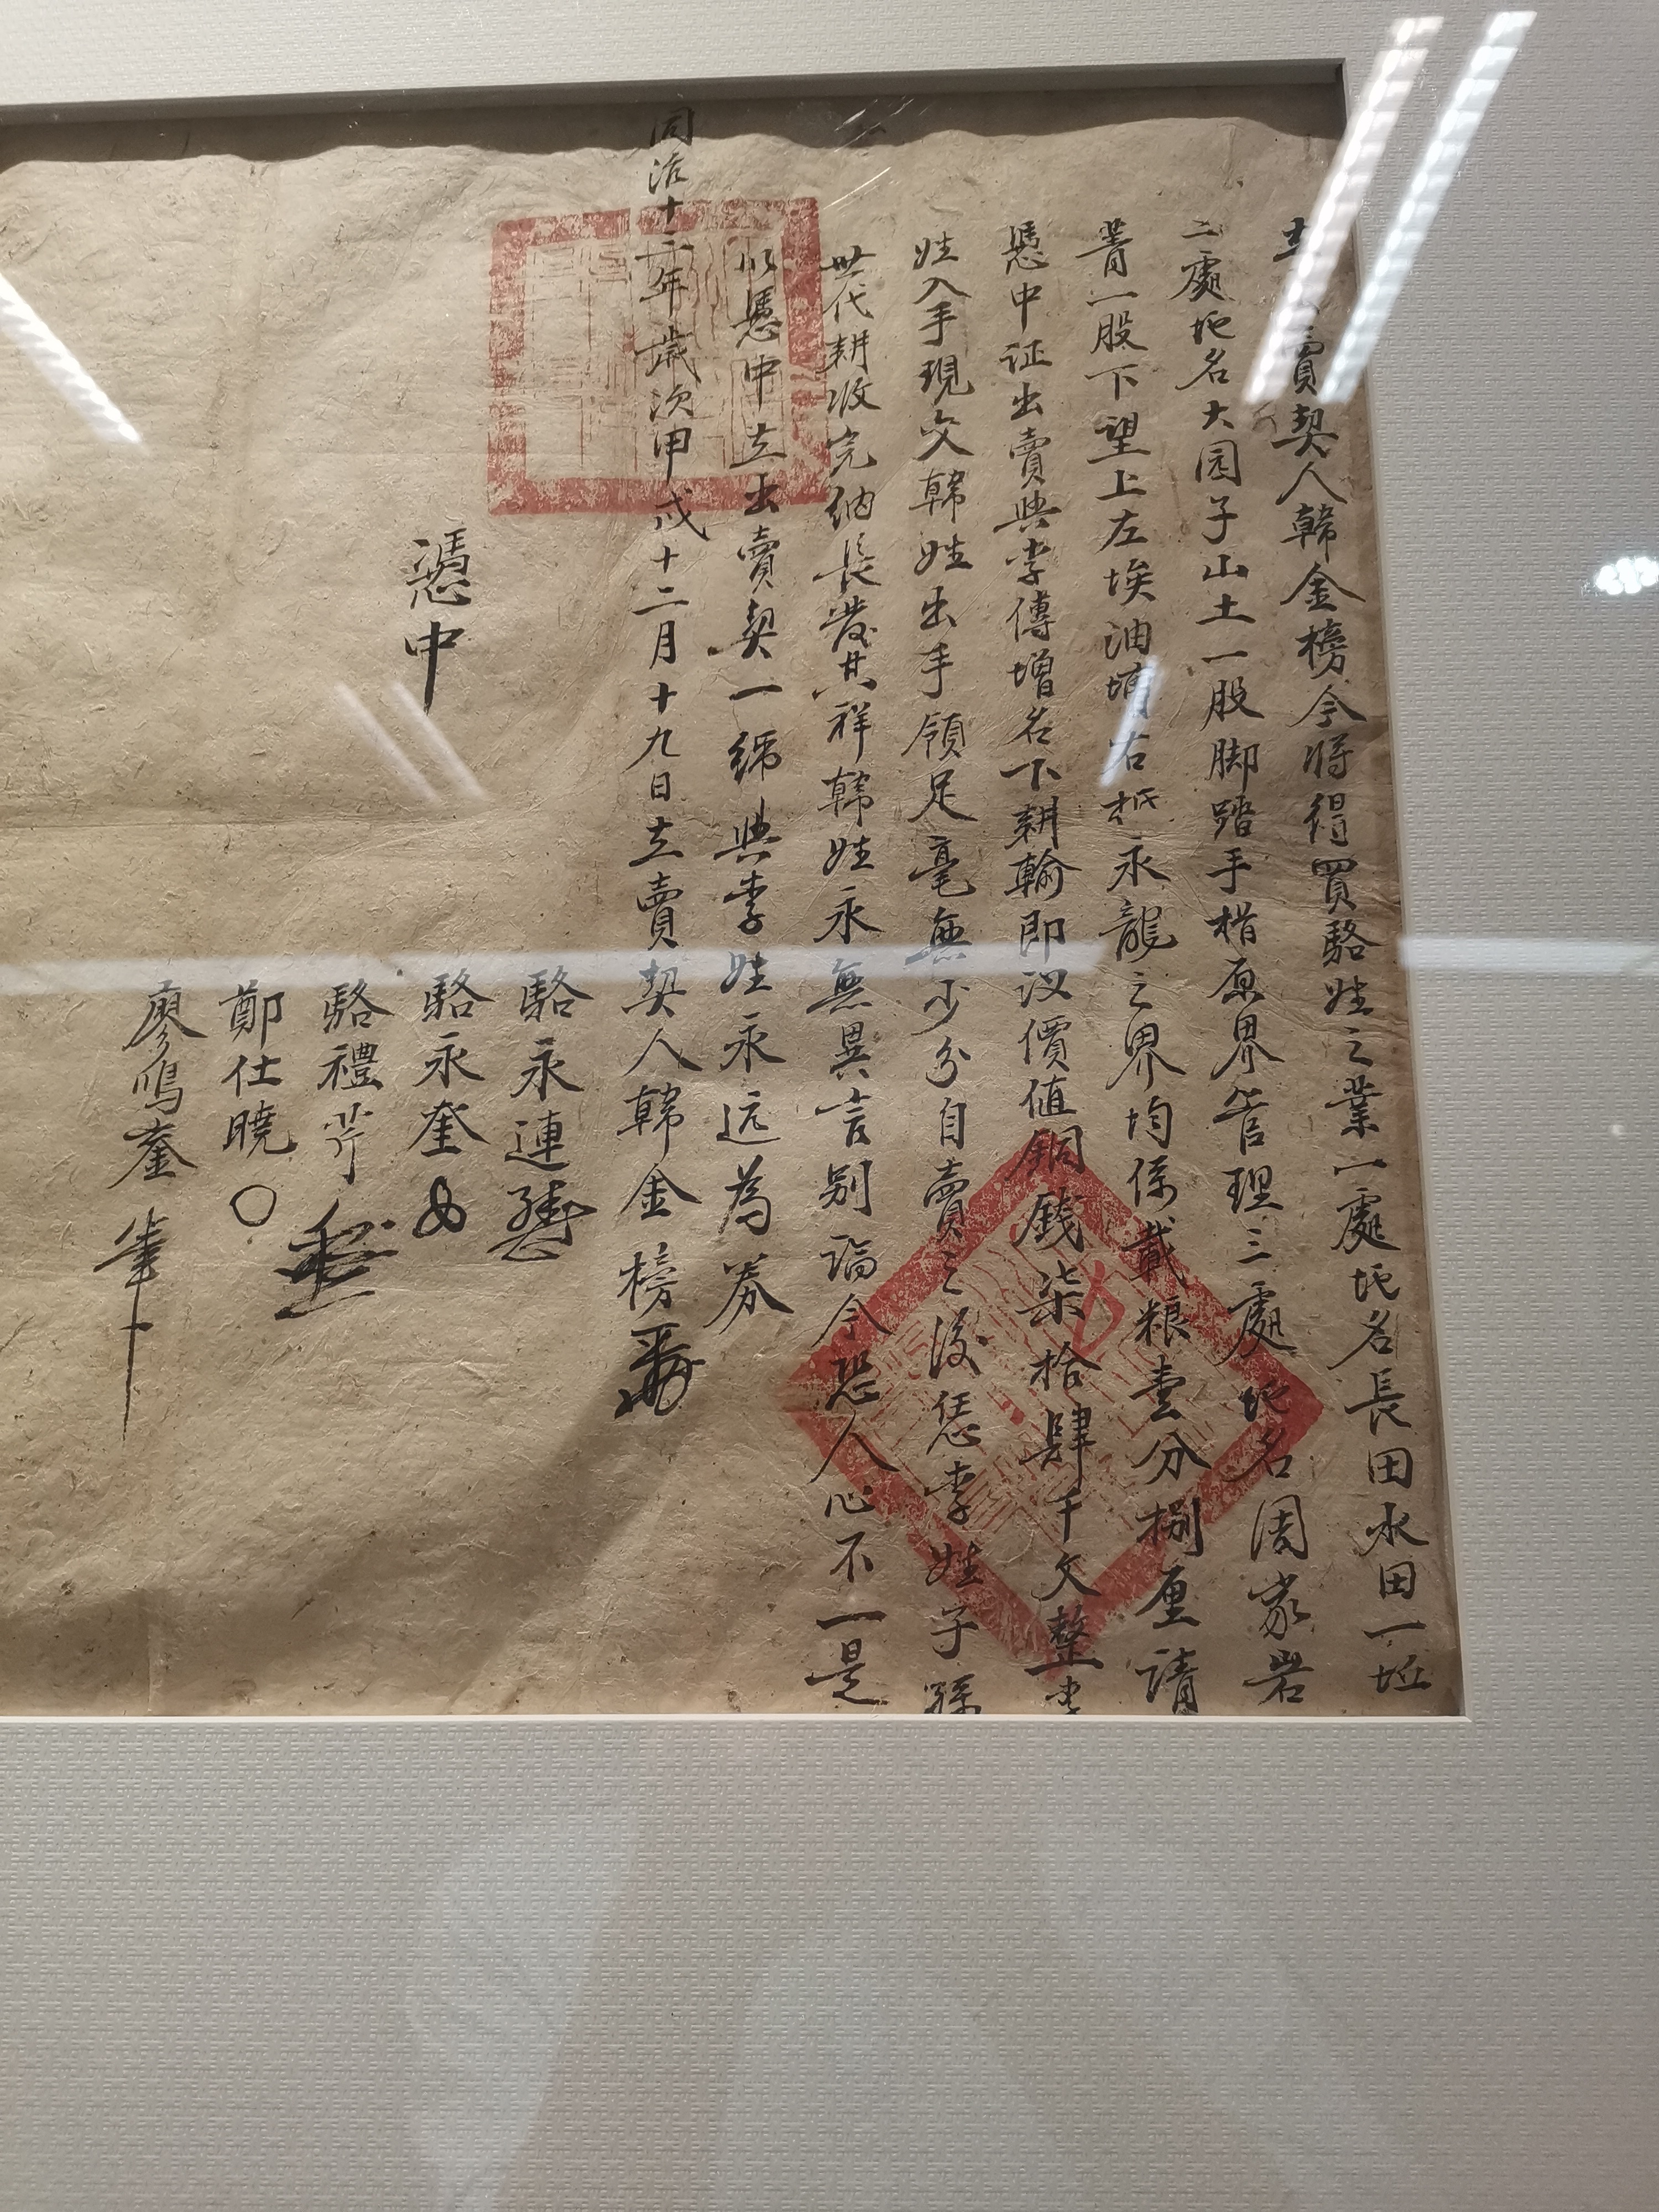 立賣契人韓金榜今將得買駱姓之業一處地名長田水田一坵
二處地名大园子山土一股脚踏手楷原界管理三處地名周家岩
菁一股下望上左埃油墒右抵永龍之界均係載粮壹分捌厘請
憑中证出賣與李傳增名下耕輸即议價值銅錢柒拾肆千文整李
姓入手現交韓姓出手領足毫無少分自賣之後恁李姓子孫
世代耕收完納長發其祥韓姓永無異言别論今恐人心不一是
以憑中立出賣契一纸與李姓永远為券
同治十三年歲次甲戌十二月十九日立賣契人韓金榜
憑中
駱永連
駱永奎
駱禮
鄭仕曉
廖鳴奎 筆